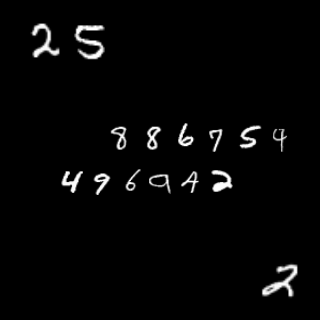 25
886754
496942
2